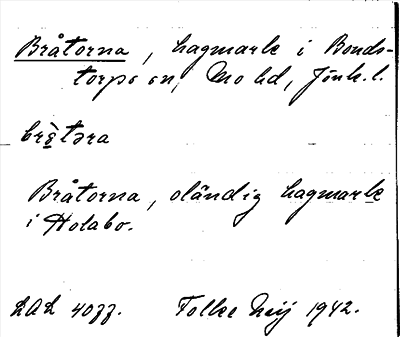 Bråtorna, hagmark i Bonds-
torps sn, Mo hd, Jönk. l.
Bråtorna, oländig hagmark
i Holabo.
Folke 1942.